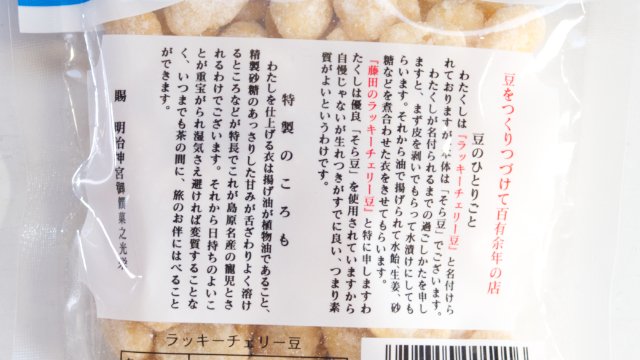 豆をつくりつづけて百有余年の店
豆のひとりごと
わたくしは『ラッキーチェリー豆』と名付けら
れておりますが、本体は「そら豆」でございます。
わたくしが名付けられるまでの過ごしかたを申し
ますと、まず皮を剥いでもらって水漬けにしても
らいます。それから油で揚げられて水飴、生姜、砂
糖などを煮合わせた衣をきせてもらいます。
『藤田のラッキーチェリー豆』と特に申しますわ
たくしは優良「そら豆」を使用されていますから
自慢じゃないが生れつきがすでに良い、つまり素
質がよいというわけです。
特製のころも
わたしを仕上げる衣は揚げ油が植物油であること、
精製砂糖のあっさりした甘みが舌ざわりよく溶け
るところなどが特長でこれが島原名産の寵児とさ
れるわけでございます。それから日持ちのよいこ
とが重宝がられ湿気さえ避ければ変質することな
く、いつまでも茶の間に、旅のお伴にはべること
ができます。
賜 明治神宮御饌菓之光栄
ラッキーチェリー豆